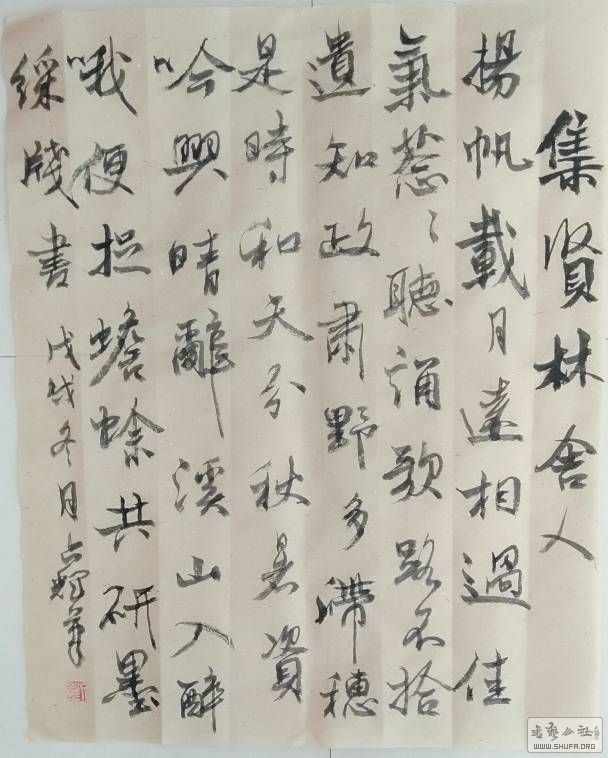 集賢林舍人
揚帆載月遠相過佳
氣蔥〻聽誦歌路不拾
遺知政肅野多滯穗
是時和天分秋暑資
吟興晴獻溪山入醉
哦便捉蟾蜍共研墨
綵牋書
戊戌冬月占輝筆
书艺公社
WWW.SHUFA.ORG